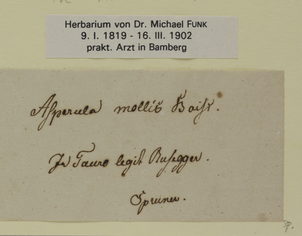 Herbarium von Dr. Michael FUNK
9. I. 1819 - 16. III. 1902
prakt. Arzt in Bamberg
Asperula mollis Boiss.
Tauro legit Russegger.
Spruner.